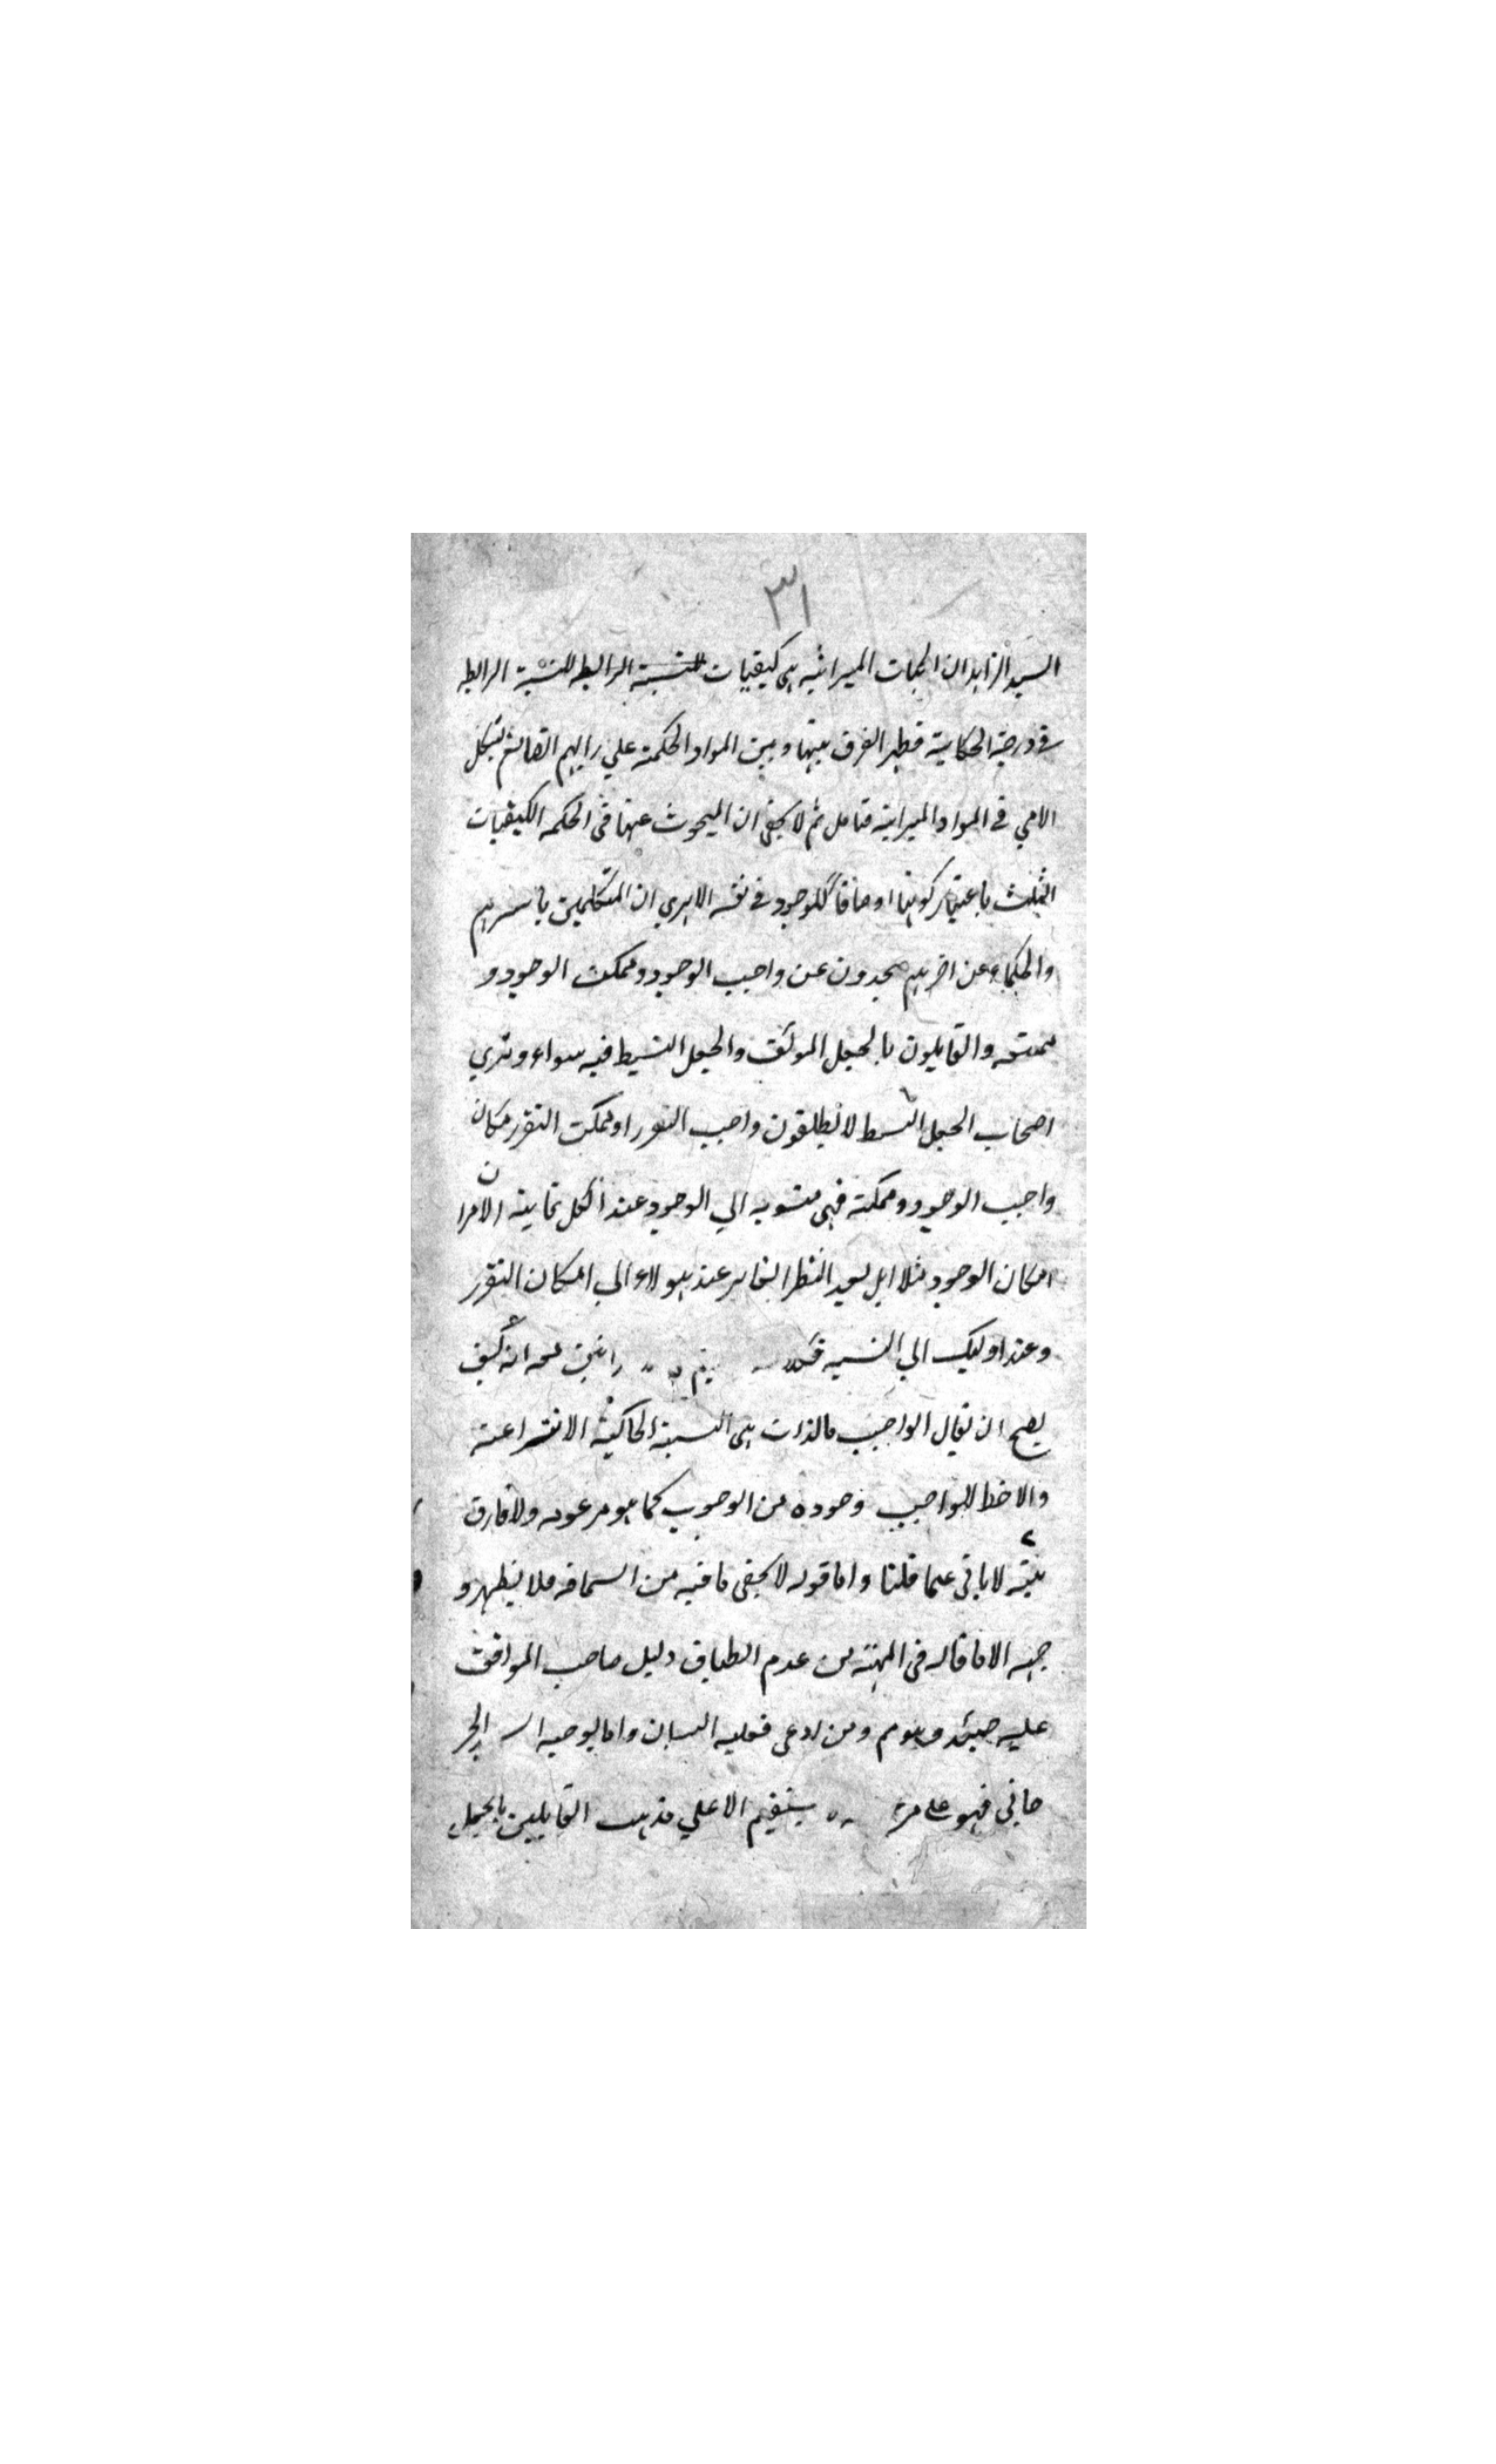 ٣١
السيد الزاهد ان الجهات الميزانية هى كيفيات للنسبة الرابطه للنسبة الرابطه
فى درجة الحكاية فظهر الفرق بينها وبين المواد الحكمة على رايهم
الامي فى المواد الميزانية فتامل ثم لا يخفى ان المبحوث عنها فى الحكمه الكيفيات
الثلث باعتبار كونها اوصافا للوجود فى نفسه الا يرى ان المتكلمين باسرهم
والحكماء عن اخرهم يبحثون عن واجب الوجود وممكن الوجود و
ممتنعه والقايلون بالجعل المولف والجعل البسيط فيه سواء وترى
اصحاب الجعل البسيط لا يطلقون واجب التقرر او ممكن التقرر مكان
واجب الوجود وممكنه فهى منسوبه الي الوجود عند الكل غاية الامر ان
امكان الوجود مثلا ايل بعيد النظر الغاير عند هولاء الى امكان التقرر
وعند اوليك الي النسبه انه كيف
يصح ان يقال الواجب بالذات هى النسبة الحاكية الانتزاعية
والاخط للواجب وجوده من الوجوب كما هو مرعوبه ولا فارق
بينه لا باقى عما قلنا واما قوله لا يخفى ما فيه من السخافه فلا يظهر و
جهه الا ما قاله فى المهنة من عدم انطباق دليل صاحب المواقف
عليه حينئذ وهو م ومن ادعى فعليه البيان واما
جانى فهو على يستقيم الا علي مذهب القايلين بالجعل